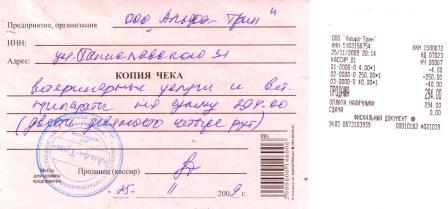 Предприятие, организация ООО "Альфа-Трин"
ИНН:
Адрес: ул. Станиславского 31
КОПИЯ ЧЕКА
ветеринарные услуги и вет.
препараты на сумму 294.00
(двести девяносто четыре руб)
Место для штампа предприятия
Продавец (кассир)
"25" 11 2009 г.
ООО "Альфа-Трин"
ИНН 5403158754 ККМ 1580672
25/11/2009 20:14
КАССИР 01
01-0000-0 4.00*1 =4.00
02-0000-0 250.00*1 =250.00
=40.00
ПРОДАЖА 294.00
ОПЛАТА НАЛИЧНЫМИ 294.00
СДАЧА 0.00
ФИСКАЛЬНЫЙ ДОКУМЕНТ